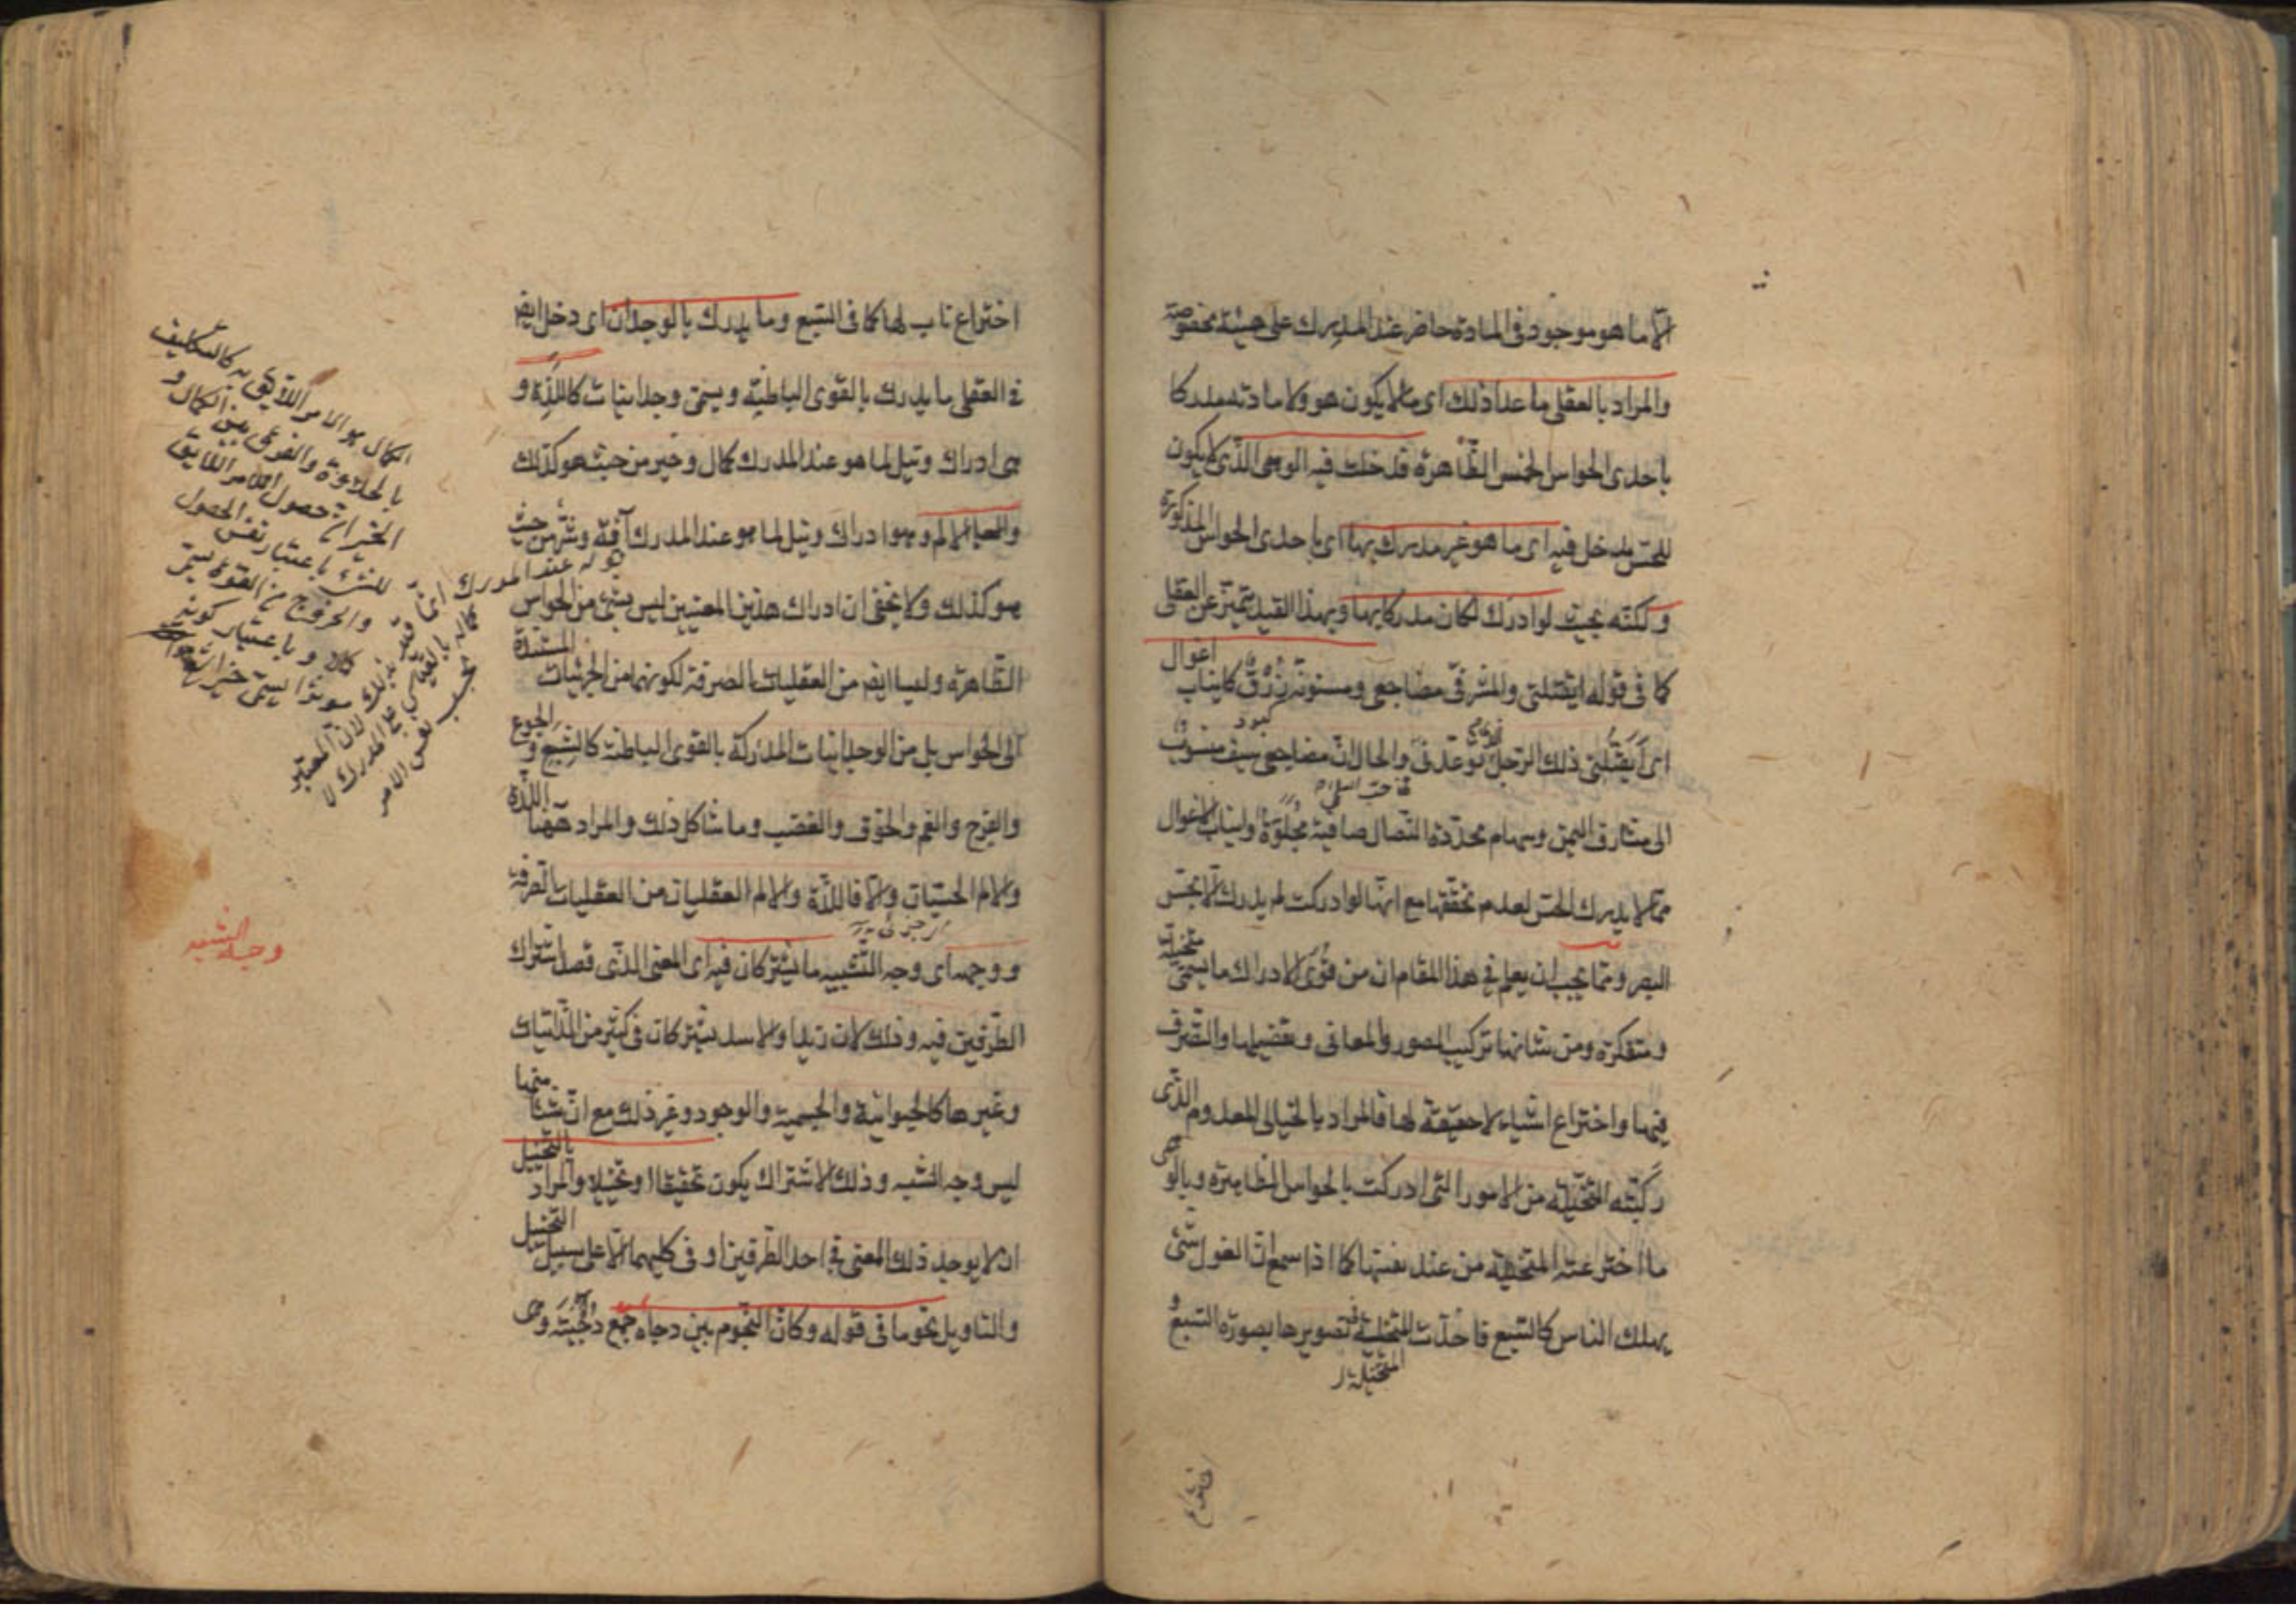 الا ما هو موجود فی المادة حاضر عند المدرک علی هیئة مخصوصة
والمراد بالعقلی ما عدا ذلک ای ما لا یکون هو ولا مادته مدرکا
باحدی الحواس الخمس الظاهرة فدخلت فیه الوهمی الذی لا یکون
للحس مدخل فیه ای ما هو غیر مدرک بها ای باحدی الحواس المذکورة
ولکنه بحیث لو ادرک لکان مدرکا بها وبهذا القید یتمیز عن العقلی
کما فی قوله ایقتلنی والمشرفی مضاجعی ومسنونة زرق کانیاب اغوال
کبود
ای ایقتلنی ذلک الرجل توعدنی والحال ان مضاجعی سیف منسوب
الی مشارف الیمن وسهام محددة النصال صافیة مجلوة وانیاب الاغوال
مما لا یدرک الحس لعدم تحققها مع انها لو ادرکت لم یدرک الا بحس
البصر ومما یجب ان یعلم فی هذا المقام ان من قوی الادراک ما یسمی متخیلة
ومتفکرة ومن شانها ترکیب الصور والمعانی وتفصیلها والتصرف
فیها واختراع اشیاء لا حقیقة لها فالمراد بالخیالی المعدوم الذی
رکبته المتخیلة من الامور التی ادرکت بالحواس الظاهرة وبالوهمی
ما اخترعته المتخیلة من عند نفسها کما اذا سمع ان الغول شئ
یهلک الناس کالسبع فاخذت المتخیلة فی تصویرها بصورة السبع و
المتخیلة
اختراع
اختراع ناب لها کما فی السبع وما یدرک بالوجدان ای دخل ایضا
فی العقلی ما یدرک بالقوی الباطنة ویسمی وجدانیات کاللذة و
هی ادراک ونیل لما هو عند المدرک کمال وخیر من حیث هو کذلک
والالم وهو ادراک ونیل لما هو عند المدرک آفة وشر من حیث
هو کذلک ولا یخفی ان ادراک هذین المعنیین لیس بشئ من الحواس
الظاهرة ولیسا ایضا من العقلیات الصرفة لکونهما من الجزئیات المستندة
الی الحواس بل من الوجدانیات المدرکة بالقوی الباطنة کالشبع والجوع
والفرح والغم والخوف والغضب وما شاکل ذلک والمراد ههنا اللذة
والالم الحسیان والا فاللذة والالم العقلیان من العقلیات الصرفة
ووجهه ای وجه التشبیه ما یشترکان فیه ای المعنی الذی قصد اشتراک
الطرفین فیه وذلک لان زیدا والاسد یشترکان فی کثیر من الذاتیات
وغیرها کالحیوانیة والجسمیة والوجود وغیر ذلک مع ان شیئا منها
لیس وجه الشبه وذلک الاشتراک یکون تحقیقا او تخییلا والمراد بالتخییل
ان لا یوجد ذلک المعنی فی احد الطرفین او فی کلیهما الا علی سبیل التخییل
والتاویل نحو ما فی قوله وکان النجوم بین دجاه جمع دجیة وهی
قوله عند المدرک
الکمال هو الامر اللایق به کالتکلیف
بالحلاوة والفرق بین الکمال و
الخیر ان حصول الامر اللایق
للشئ باعتبار نفس الحصول
والخروج من القوة یسمی
کمالا وباعتبار کونه
موثرا یسمی خیرا
وجه الشبه